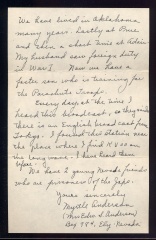 We have lived in Oklahoma
many years. Lastly at Price
and then a short time at Adair.
My husband saw foreign duty
in War I. Now we have a
foster son who is training for
the Parachute Troops.
Every day at the time I
heard this broadcast, so they say
there is an English broadcast from
Tokyo. I found this station near
the place where I find KGOO on
the long wave. I have heard them
before.
We have 2 young Nevada friends
who are prisoners of the Japs.
Yours sincerely
Myrtle Anderson
(Mrs Eden S. Anderson)
Box 784, Ely, Nevada